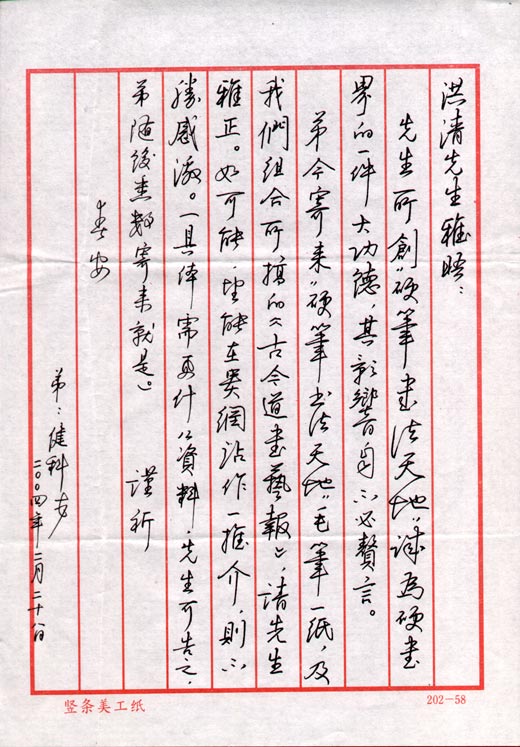 洪清先生雅晤：
先生所創“硬筆書法天地”誠為硬書
界的一件大功德，其影響自不必贅言。
弟今寄来“硬筆书法天地”毛筆一纸，及
我們组合所搞的《古今道書藝報》，请先生
雅正。如可能，望能在貴網站作一推介，則不
勝感激。（具体需要什么資料，先生可告之，
弟随後悉数寄来就是。）
謹祈
春安
弟：健科
二〇〇四年二月二十八日
竖条美工纸
202-58